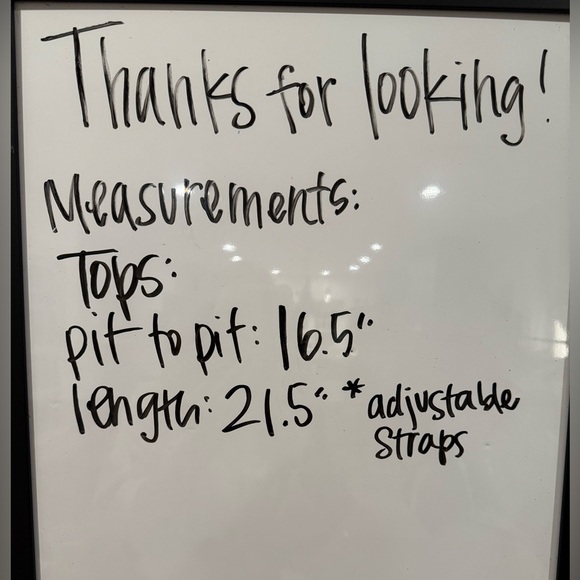 Thanks for looking!
Measurements:
Tops:
pit to pit: 16.5"
length: 21.5" *adjustable
straps